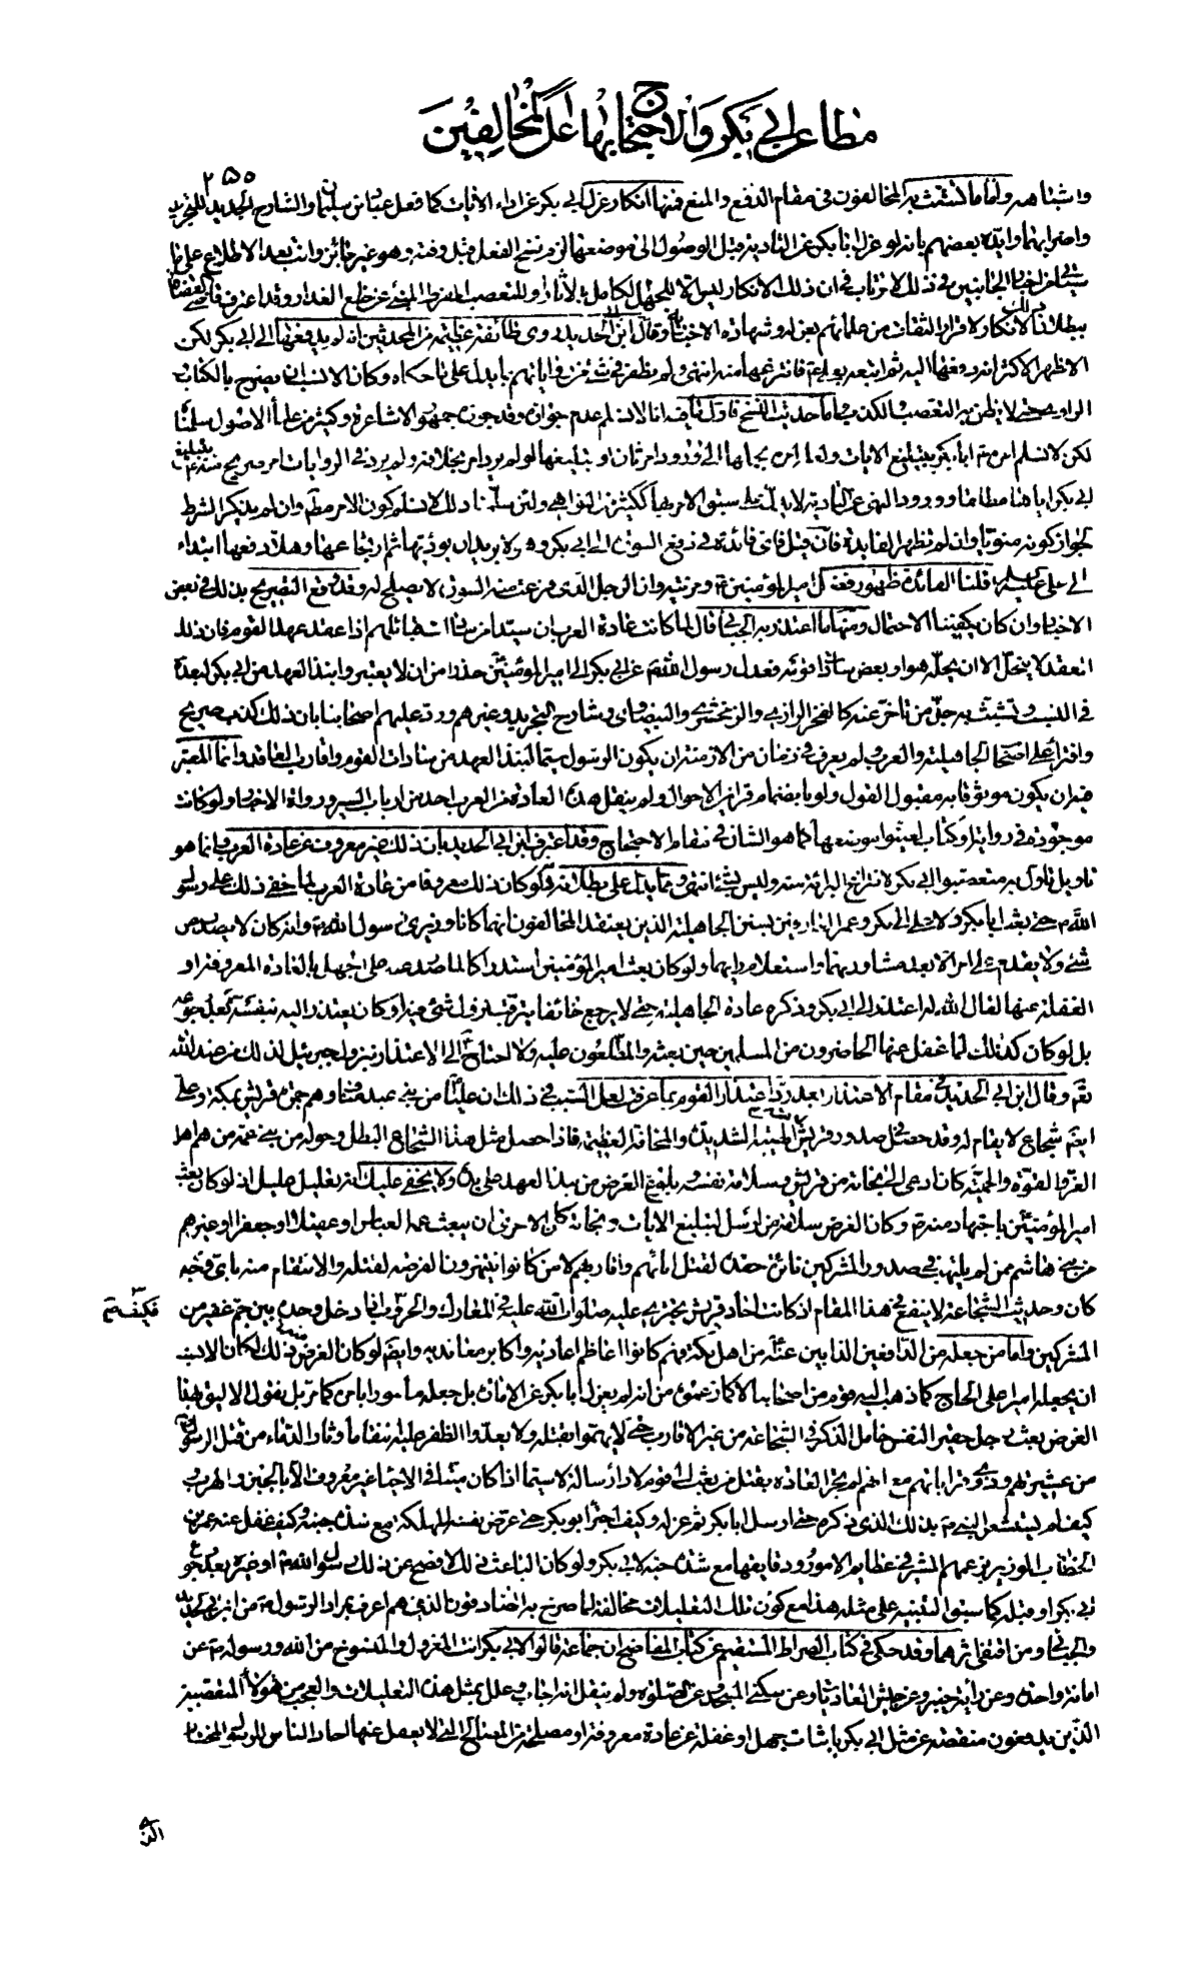 مطاعن ابي بكر والاحتجاج بها على المخالفين
٢٥٥
واشباهه واما ما تشبث به المخالفون في مقام الدفع والمنع فمنها انكار عزل ابي بكر عن اداء الايات كما فعل عباد بن سليمان والشارح الجديد للتجريد
واضرابهما وايده بعضهم بانه لو عزل ابا بكر عن التادية قبل الوصول الى موضعها لزم نسخ الفعل قبل وقته وهو غير جائز وانت بعد الاطلاع على ما
سبق من اخبار الجانبين في ذلك لا ترتاب في ان ذلك الانكار ليس الا للجهل الكامل بالاثار او للتعصب المفرط المنبئ عن خلع العذار وقد اعترف قاضي القضاة
ببطلان ذلك الانكار لاقرار الثقات من علمائهم بعزله وشهادة الاخبار به وقال ابن ابي الحديد روى طائفة عظيمة من المحدثين انه لم يدفعها الى ابي بكر لكن
الاظهر الاكثر انه دفعها اليه ثم اتبعه بعلي ع فانتزعها منه انتهى ولم نظفر في شئ من رواياتهم بما يدل على ما حكاه وكان الانسب ان يصرح بالكتاب
الراوي حتى لا يظن به التعصب والكذب واما حديث النسخ فاول ما فيه انا لا نسلم عدم جوازه وقد جوزه جمهور الاشاعرة وكثير من علماء الاصول سلمنا
لكن لا نسلم امره ص ابا بكر بتبليغ الايات ولعله امره بحملها الى ورود امر ثان او تبليغها لو لم يرد امر بخلافه ولم يرد في الروايات امر صريح منه ص بتبليغ
ابي بكر اياها مطلقا وورود النهي عن التادية لا يدل على سبق الامر بها ككثير من النواهي ولئن سلمنا ذلك لا نسلم كون الامر مطلقا وان لم يذكر الشرط
لجواز كونه منويا وان لم تظهر الفائدة فان قيل فاي فائدة في دفع السورة الى ابي بكر وهو لا يريد ان يؤديها ثم ارتجاعها وهلا دفعها ابتداء
الى علي عليه السلام قلنا الفائدة ظهور فضل امير المؤمنين ع ومزيته وان الرجل الذي نزعت منه السورة لا يصلح له وقد وقع التصريح بذلك في بعض
الاخبار وان كان يكفينا الاحتمال ومنها ما اعتذر به الجبائي قال لما كانت عادة العرب ان سيدا من سادات قبائلهم اذا عقد عهدا لقوم فان ذلك
العقد لا ينحل الا ان يحله هو او بعض سادات قومه فعدل رسول الله ص عن ابي بكر الى امير المؤمنين حذرا من ان لا يعتبروا نبذ العهد من ابي بكر لبعده
في النسب وتشبث به جل من تاخر عنه كالفخر الرازي والزمخشري والبيضاوي وشارح التجريد وغيرهم ورد عليهم اصحابنا بان ذلك كذب صريح
وافتراء على اصحاب الجاهلية والعرب ولم يعرف في زمان من الازمنة ان يكون الرسول سيما لنبذ العهد من سادات القوم واقارب العاقد وانما المعتبر
فيه ان يكون موثوقا به مقبول القول ولو بانضمام قرائن الاحوال ولم ينقل هذه العادة من العرب احد من ارباب السير ورواة الاخبار ولو كانت
موجودة في رواية او كتاب لعينوا موضعها كما هو الشان في مقام الاحتجاج وقد اعترف ابن ابي الحديد بان ذلك غير معروف عن عادة العرب وانما هو
تاويل تاول به متعصبوا ابي بكر لانتزاع البراءة منه وليس بشئ انتهى ومما يدل على بطلانه انه لو كان ذلك معروفا من عادة العرب لما خفي ذلك على رسول
الله ص حتى بعث ابا بكر ولا على ابي بكر وعمر العارفين بسنن الجاهلية الذين يعتقد المخالفون انهما كانا وزيري رسول الله ص وانه كان لا يصدر عن
شئ ولا يقدم على امر الا بعد مشاورتهما واستعلام رايهما ولو كان بعث امير المؤمنين استدراكا لما صدر عنه على الجهل بالعادة المعروفة او
الغفلة عنها لقال الله له اعتذر الى ابي بكر وذكره عادة الجاهلية حتى لا يرجع خائفا يترقب نزول شئ فيه او كان يعتذر اليه بنفسه ص بعد رجوعه
بل لو كان كذلك لما غفل عنها الحاضرون من المسلمين حين بعثه والمطلعون عليه ولا احتاج ص الى الاعتذار بنزول جبرئيل لذلك من عند الله
تعالى وقال ابن ابي الحديد في مقام الاعتذار بعد رد اعتذار القوم بما عرفت لعل السبب في ذلك ان عليا من بني عبد مناف وهم جمرة قريش بمكة وعلي
ايضا شجاع لا يقام له وقد حصل في صدور قريش منه الهيبة الشديدة والمخافة العظيمة فاذا حصل مثل هذا الشجاع البطل وحوله من بني عمه من هم اهل
العز والقوة والحمية كان ادعى الى نجاته من قريش وسلامة نفسه وبلوغ الغرض من نبذ العهد على يده ولا يخفى عليك انه تعليل عليل اذ لو كان بعث
امير المؤمنين باجتهاد منه ص وكان الغرض سلامة من ارسل لتبليغ الايات ونجاته كان الاحرى ان يبعث عمه العباس او عقيلا او جعفرا او غيرهم
من بني هاشم ممن لم يلتهب في صدور المشركين نائرة حقده لقتل ابائهم واقاربهم لا من كانوا ينتهزون الفرصة لقتله والانتقام منه باي وجه
كان وحديث الشجاعة لا ينفع في هذا المقام اذ كانت احاد قريش تجترئ عليه صلوات الله عليه في المعارك والحروب فاذا دخل وحده بين جم غفير من
فكيف به
المشركين واما من جعله من الدافعين الذابين عنه ع من اهل مكة فهم كانوا اعاظم اعاديه واكابر معانديه وايضا لو كان الغرض ذلك لكان الانسب
ان يجعله اميرا على الحاج كما ذهب اليه قوم من اصحابنا لا كما زعموه من انه لم يعزل ابا بكر عن الامارة بل جعله مامورا بامره كما مر بل نقول الاليق بهذا
الغرض بعث رجل حقير النفس خامل الذكر في الشجاعة من غير الاقارب حتى لا يهتموا بقتله ولا يعدوا الظفر عليه انتقاما وثار الدماء من قتل الرسول ص
من عشيرتهم وذوي قراباتهم مع انه لم تجر العادة بقتل من بعث الى قوم لاداء رسالة لا سيما اذا كان ميتا في الاحياء غير معروف الا بالجبن والهرب
كيف لم يستشعر النبي ص بذلك الذي ذكره حتى ارسل ابا بكر ثم عزله وكيف اجترا ابو بكر حتى عرض نفسه للهلكة مع شدة جبنه وكيف غفل عنه عمر بن
الخطاب الوزير بزعمهم المشير في عظايم الامور ودقايقها مع شدة حبه لابي بكر ولو كان الباعث ذلك لافصح عن ذلك رسول الله ص او غيره بعد رجوع
ابي بكر او قبله كما سبق التنبيه على مثله هذا مع كون تلك التعليلات مخالفة لما صرح به الصادقون الذين هم اعرف بمراد الرسول ص من ابن ابي الحديد
والجبائي ومن اقتفى اثرهما وقد حكى في كتاب الصراط المستقيم عن كتاب المفاضح ان جماعة قالوا لابي بكر انت المعزول والمنسوخ من الله ورسوله ص عن
امانة واحدة وعن راية خيبر وعن جيش العاديات وعن سكنى المسجد وعن الصلوة ولم ينقل انه اجاب وعلل بمثل هذه التعليلات والعجب من هؤلاء المتعصبين
الذين يدفعون منقصة عن مثل ابي بكر باثبات جهل او غفلة عن عادة معروفة او مصلحة من المصالح التي لا يغفل عنها احاد الناس للرسول المختار
الذي